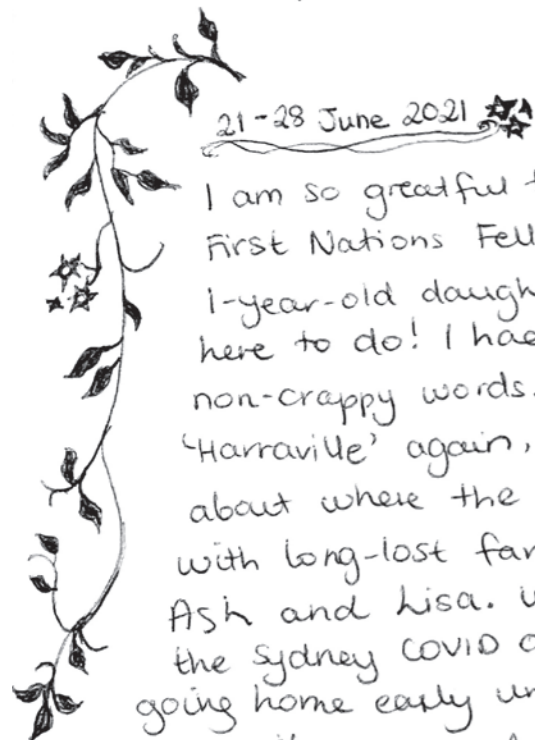 21-28 June 2021
I am so greatful
First Nations Fell
1-year-old daugh
here to do! I had
non-crappy words.
'Harraville' again,
about where the
with long-lost far
Ash and Lisa.
the Sydney COVID
going home early